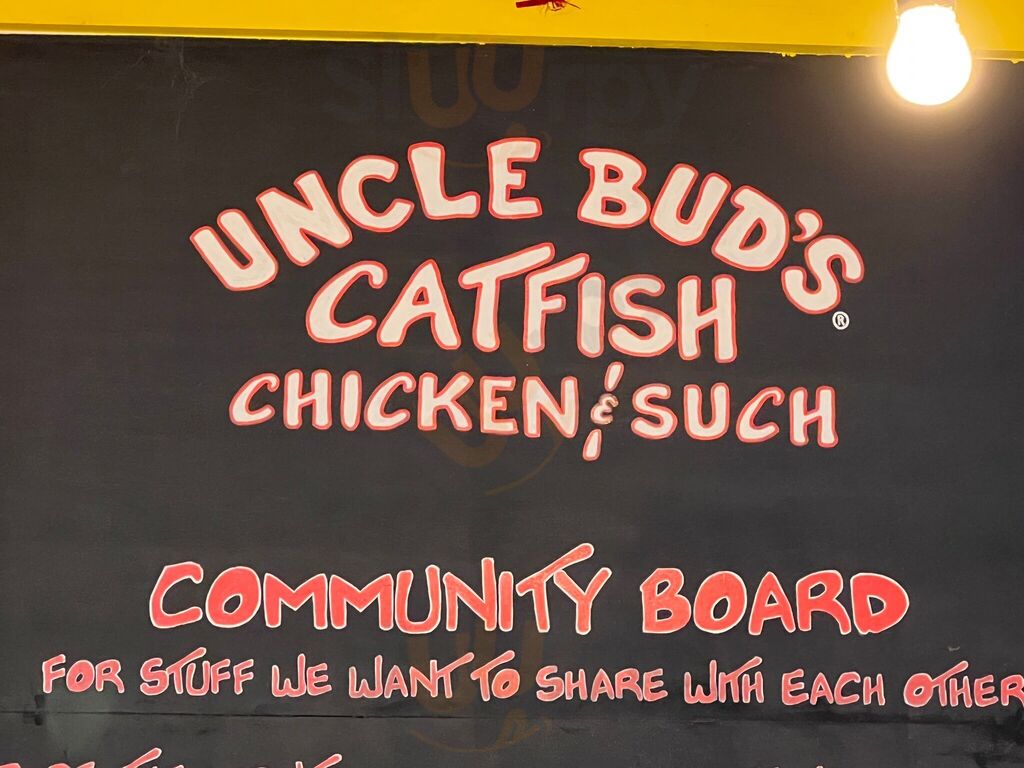 UNCLE BUD'S
CATFISH ®
CHICKEN & SUCH
COMMUNITY BOARD
FOR STUFF WE WANT TO SHARE WITH EACH OTHER